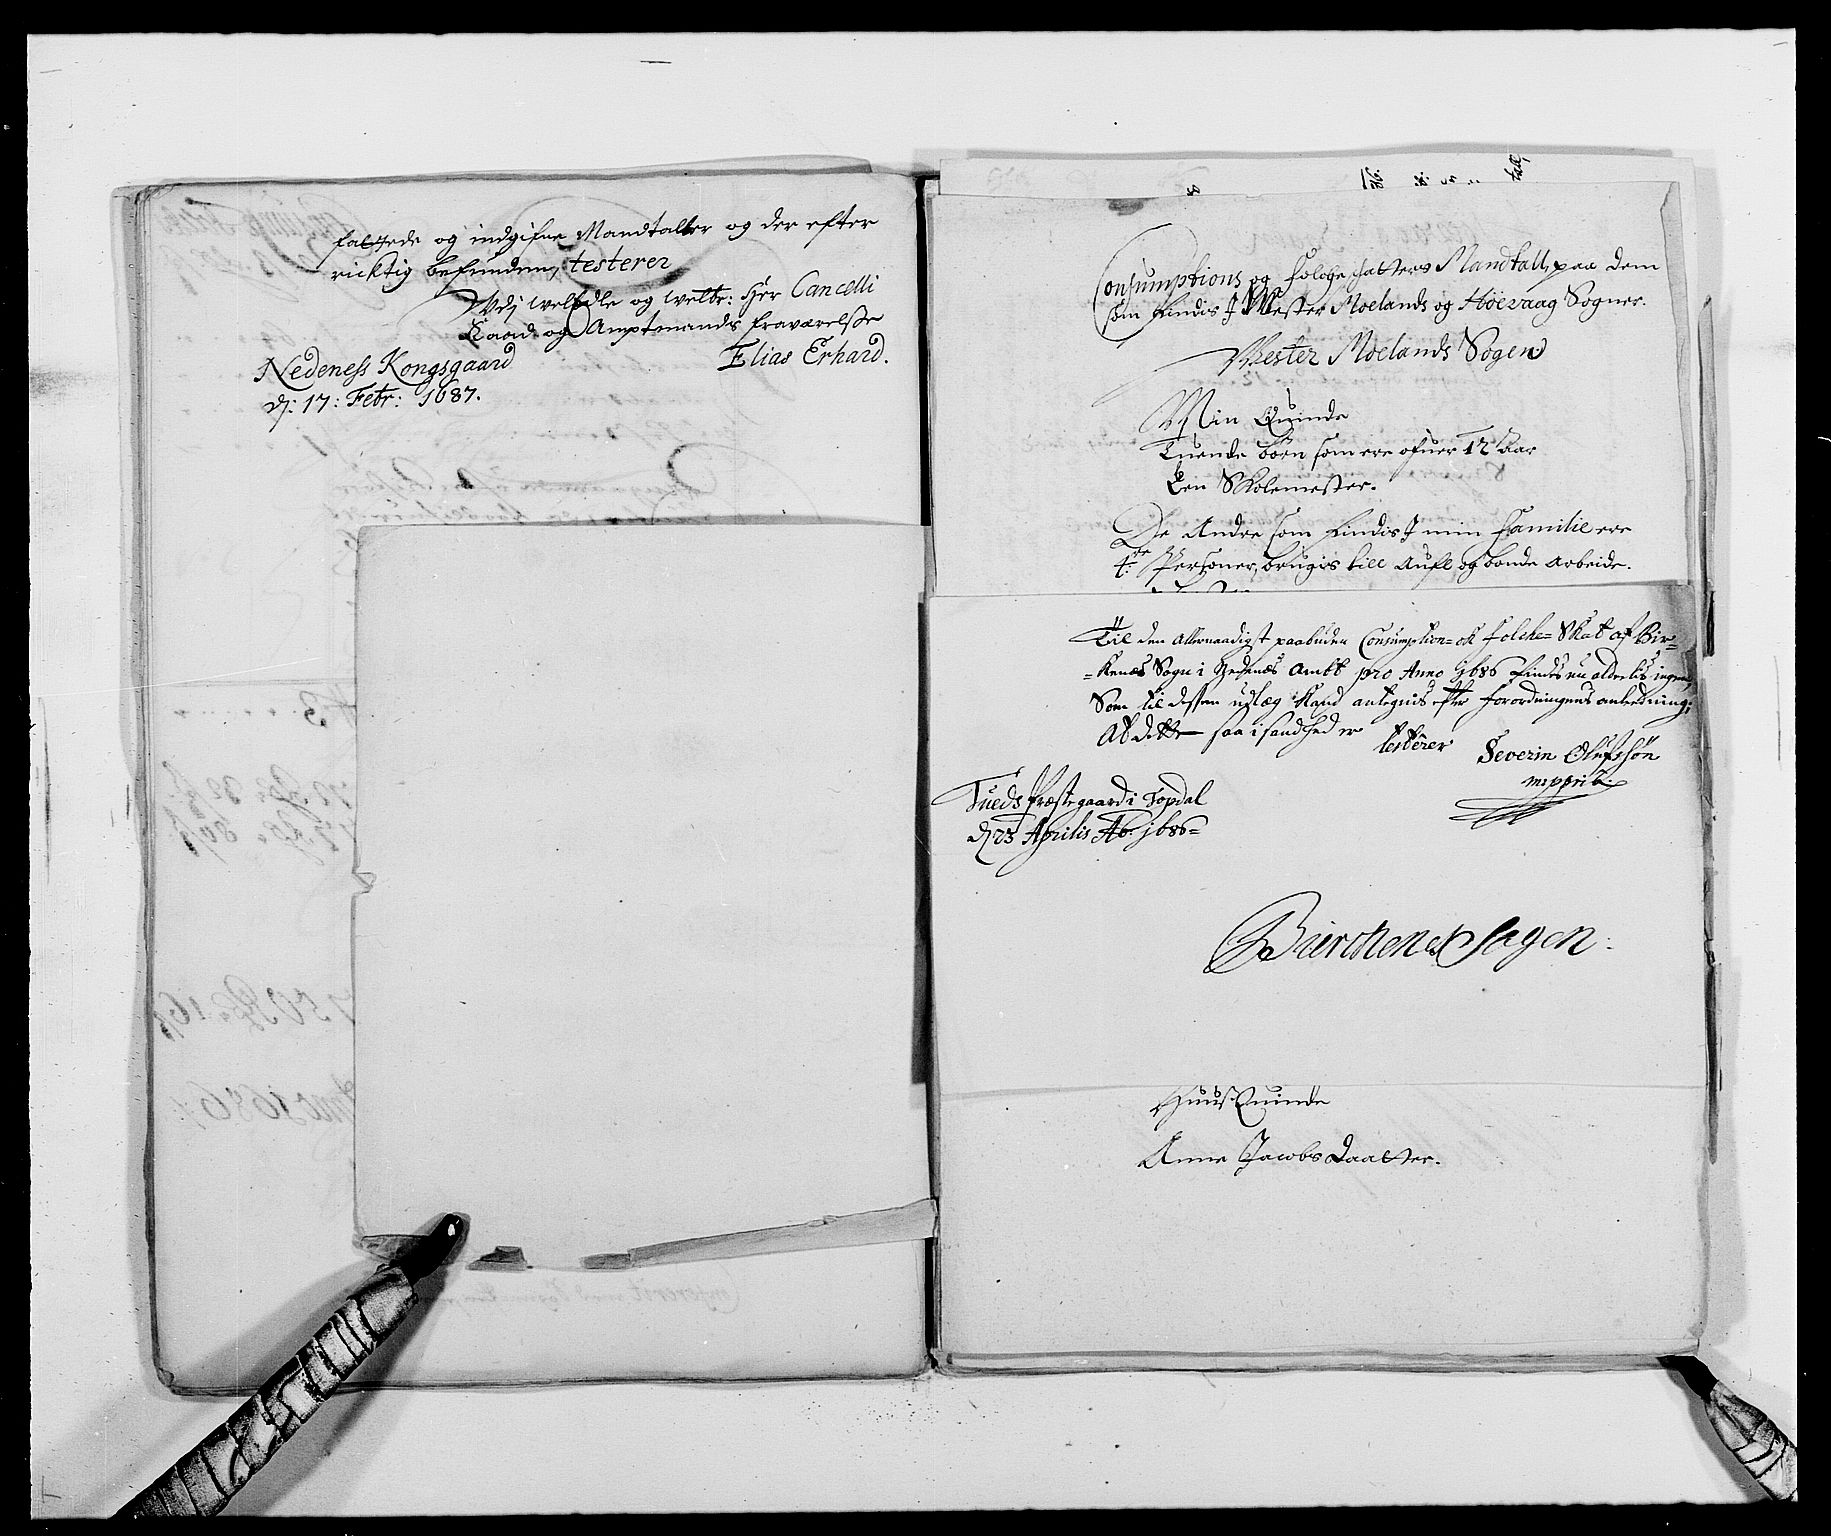 fattede og indgifne Mandtaller og der efter
ricktig befunden, testerer
Udj welEdle og welbr: Her Cancelli
Raad og Amptmands fraværelsse
Elias Erhard.
Nedeness Kongsgaard
dj: 17: Febr: 1687.
Consumptions og folcheschatters Mandtall, paa dem
som findis J Wester Moelands og Höevaag Sogner.
Wester Moelands Sogen
Min Quinde
Tuende börn som ere ofuer 12 Aar
Een Skolemester.
De Andre som findis J min Familie ere
4re Personer, brugis till Aufl og bonde Arbeide.
Til den Allernaadigst paabuden Consumption= ok folche= Skat af Bir=
=kenæs Sogn i Nedenæs Ambt pro Anno 1686 findis nu aldeelis ingen,
Som til dessen udlæg kand antegnis efter forordningens anledning;
At dette saa i sandhed er testerer
Severin Olufssön
mppria.
Tueds Præstegaard i Topdal
d 23 Aprilis Ao: 1686=
Bierchenes Sogen:
Huus Quinde
Anne Jacobs Daatter.